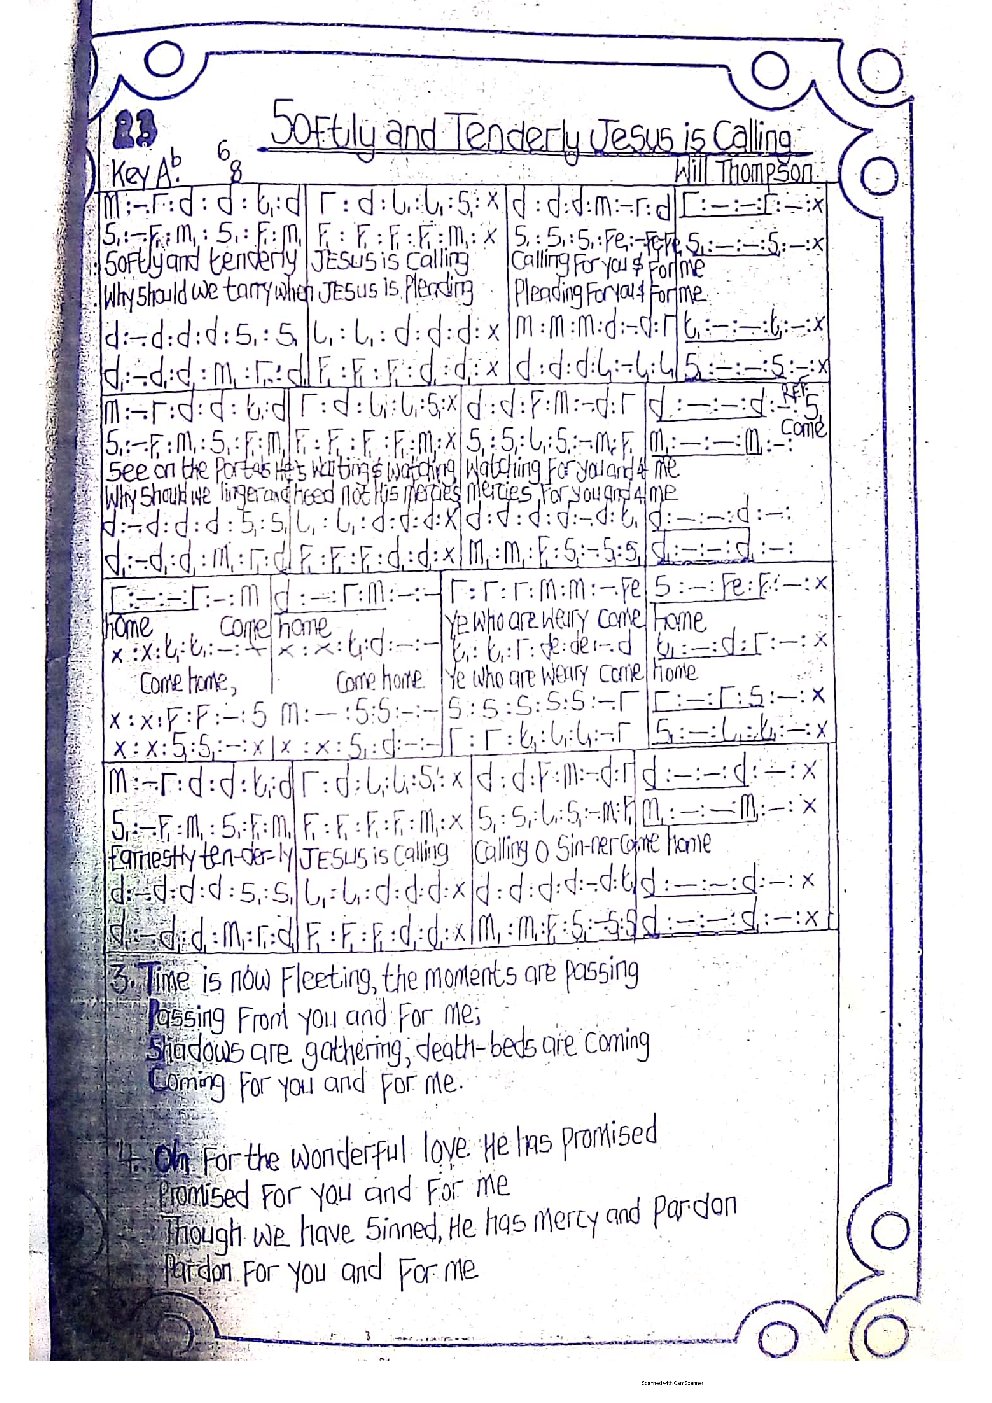 23
Softly and Tenderly Jesus is Calling
Key Ab. 6/8 Will Thompson
m:-.r:d : d : t₁:d | r : d : l₁ : l₁ : s₁ : x | d : d : d : m:-r:d | r:-:-:r:-:x
s₁:-f₁:m₁ : s₁ : f₁:m₁ | f₁ : f₁ : f₁ : f₁ : m₁ : x | s₁ : s₁ : s₁ : fe₁:-fe₁:fe₁ | s₁:-:-:s₁:-:x
Softly and tenderly JESUS is calling Calling For you & For me
Why should we tarry when JESUS is Pleading Pleading For you & For me
d:-d:d:d:s₁:s₁ | l₁ : l₁ : d : d : d : x | m : m : m : d:-d:r | t₁:-:-:t₁:-:x
d₁:-d₁:d₁ : m₁ : r₁:d₁ | f₁ : f₁ : f₁ : d₁ : d₁ : x | d : d : d : l₁:-l₁:l₁ | s₁:-:-:s₁:-:x
m:-r:d:d : t₁:d | r : d : l₁ : l₁ : s₁:x | d : d : f : m:-d:r | d :-:-:d:-: s₁
REF.
Come
s₁:-f₁:m₁:s₁:f₁:m₁ | f₁: f₁ : f₁ : f₁:m₁:x | s₁ : s₁:l₁:s₁:-m₁:f₁ | m₁:-:-:m₁:-:
See on the Portals He's waiting & watching Watching For you and 4 me
Why should we linger and heed not His mercies mercies For you and 4 me
d:-d:d:d:s₁:s₁ | l₁ : l₁:d:d:d:x | d:d:d:d:-d:t₁ | d:-:-:d:-:
d₁:-d₁:d₁:m₁:r₁:d₁ | f₁:f₁:f₁:d₁:d₁:x | m₁:m₁:f₁:s₁:-s₁:s₁ | d₁:-:-:d₁:-:
r:-:-:r:-:m | d:-:r:m:-:- | r:r:r:m:m:-fe | s:-:fe:f:-:x
home Come home Ye who are weary Come home
x:x:t₁:t₁:-:x | x:x:t₁:d:-:- | t₁:t₁:r:de:de:-d | t₁:-:d:r:-:x
Come home, Come home Ye who are weary come home
x:x:f:f:-:s | m:-:s:s:-:- | s:s:s:s:s:-r | r:-:r:s:-:x
x:x:s₁:s₁:-:x | x:x:s₁:d:-:- | r:r:t₁:l₁:l₁:-r | s₁:-:l₁:t₁:-:x
m:-r:d:d:t₁:d | r:d:l₁:l₁:s₁:x | d:d:f:m:-d:r | d:-:-:d:-:x
s₁:-f₁:m₁:s₁:f₁:m₁ | f₁:f₁:f₁:f₁:m₁:x | s₁:s₁:l₁:s₁:-m₁:f₁ | m₁:-:-:m₁:-:x
Earnestly ten-der-ly JESUS is Calling Calling O Sin-ner Come home
d:-d:d:d:s₁:s₁ | l₁:l₁:d:d:d:x | d:d:d:d:-d:t₁ | d:-:-:d:-:x
d₁:-d₁:d₁:m₁:r₁:d₁ | f₁:f₁:f₁:d₁:d₁:x | m₁:m₁:f₁:s₁:-s₁:s₁ | d₁:-:-:d₁:-:x
3. Time is now Fleeting, the moments are passing
Passing From you and For me;
Shadows are gathering, death-beds are Coming
Coming For you and For me.
4. Oh For the wonderful love He has Promised
Promised For you and For me
Though we have Sinned, He has Mercy and Pardon
Pardon For you and For me
Scanned with CamScanner